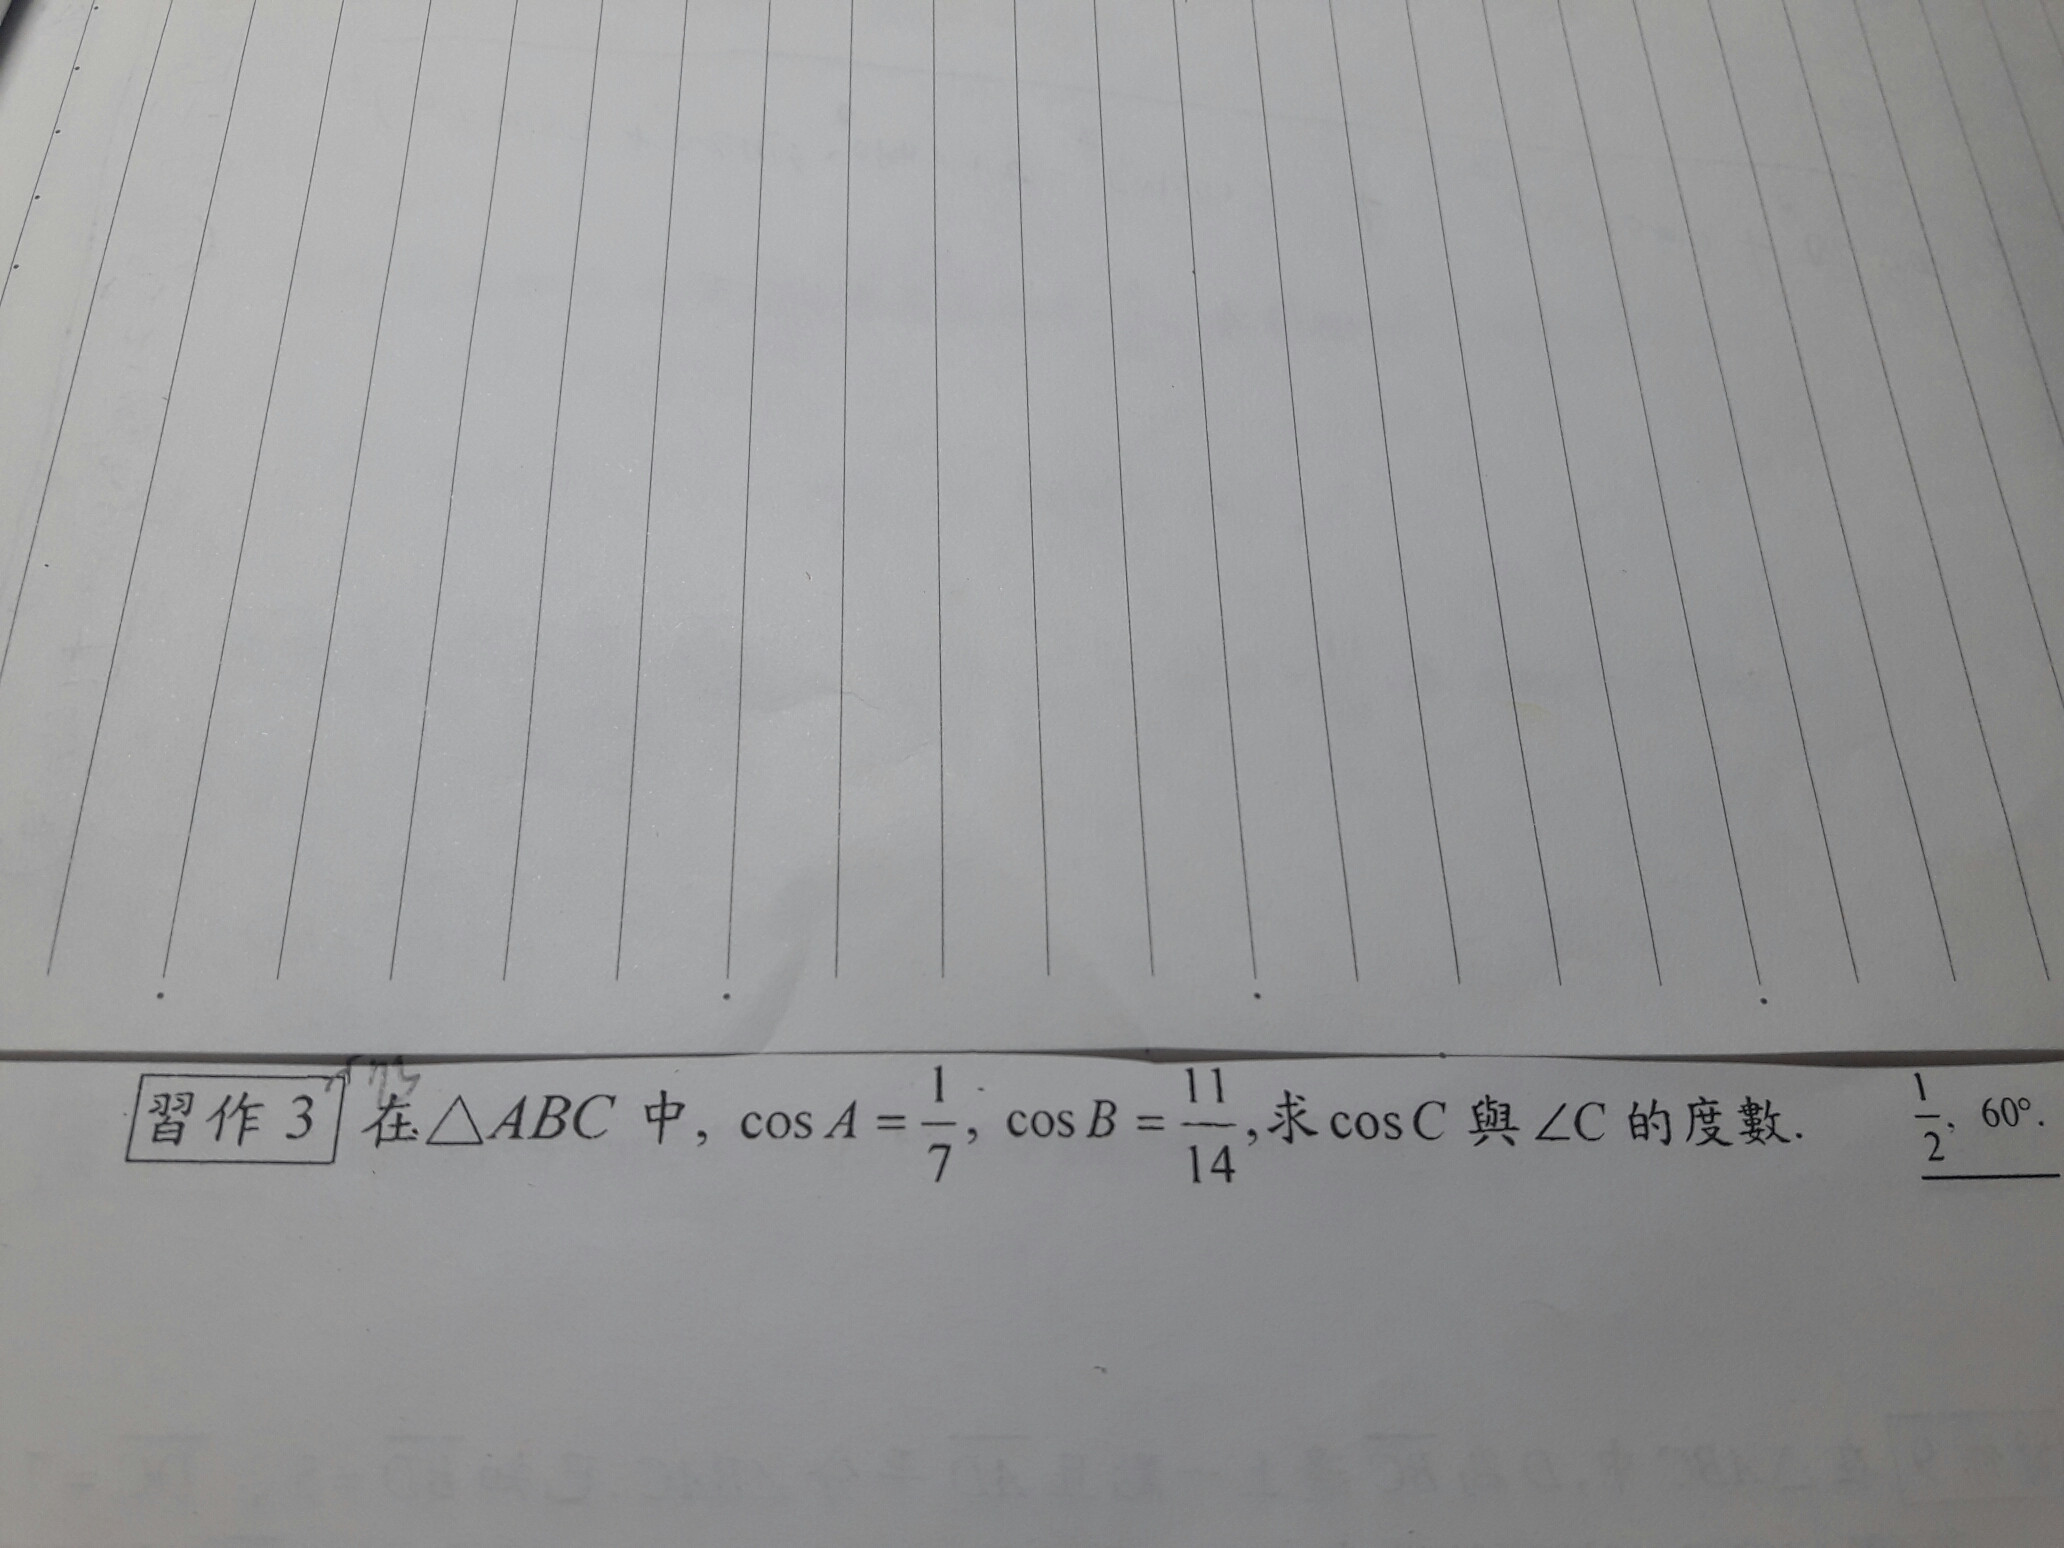 習作 3 在△ABC 中, cos A = 1/7, cos B = 11/14, 求 cos C 與 ∠C 的度數. 1/2, 60°.